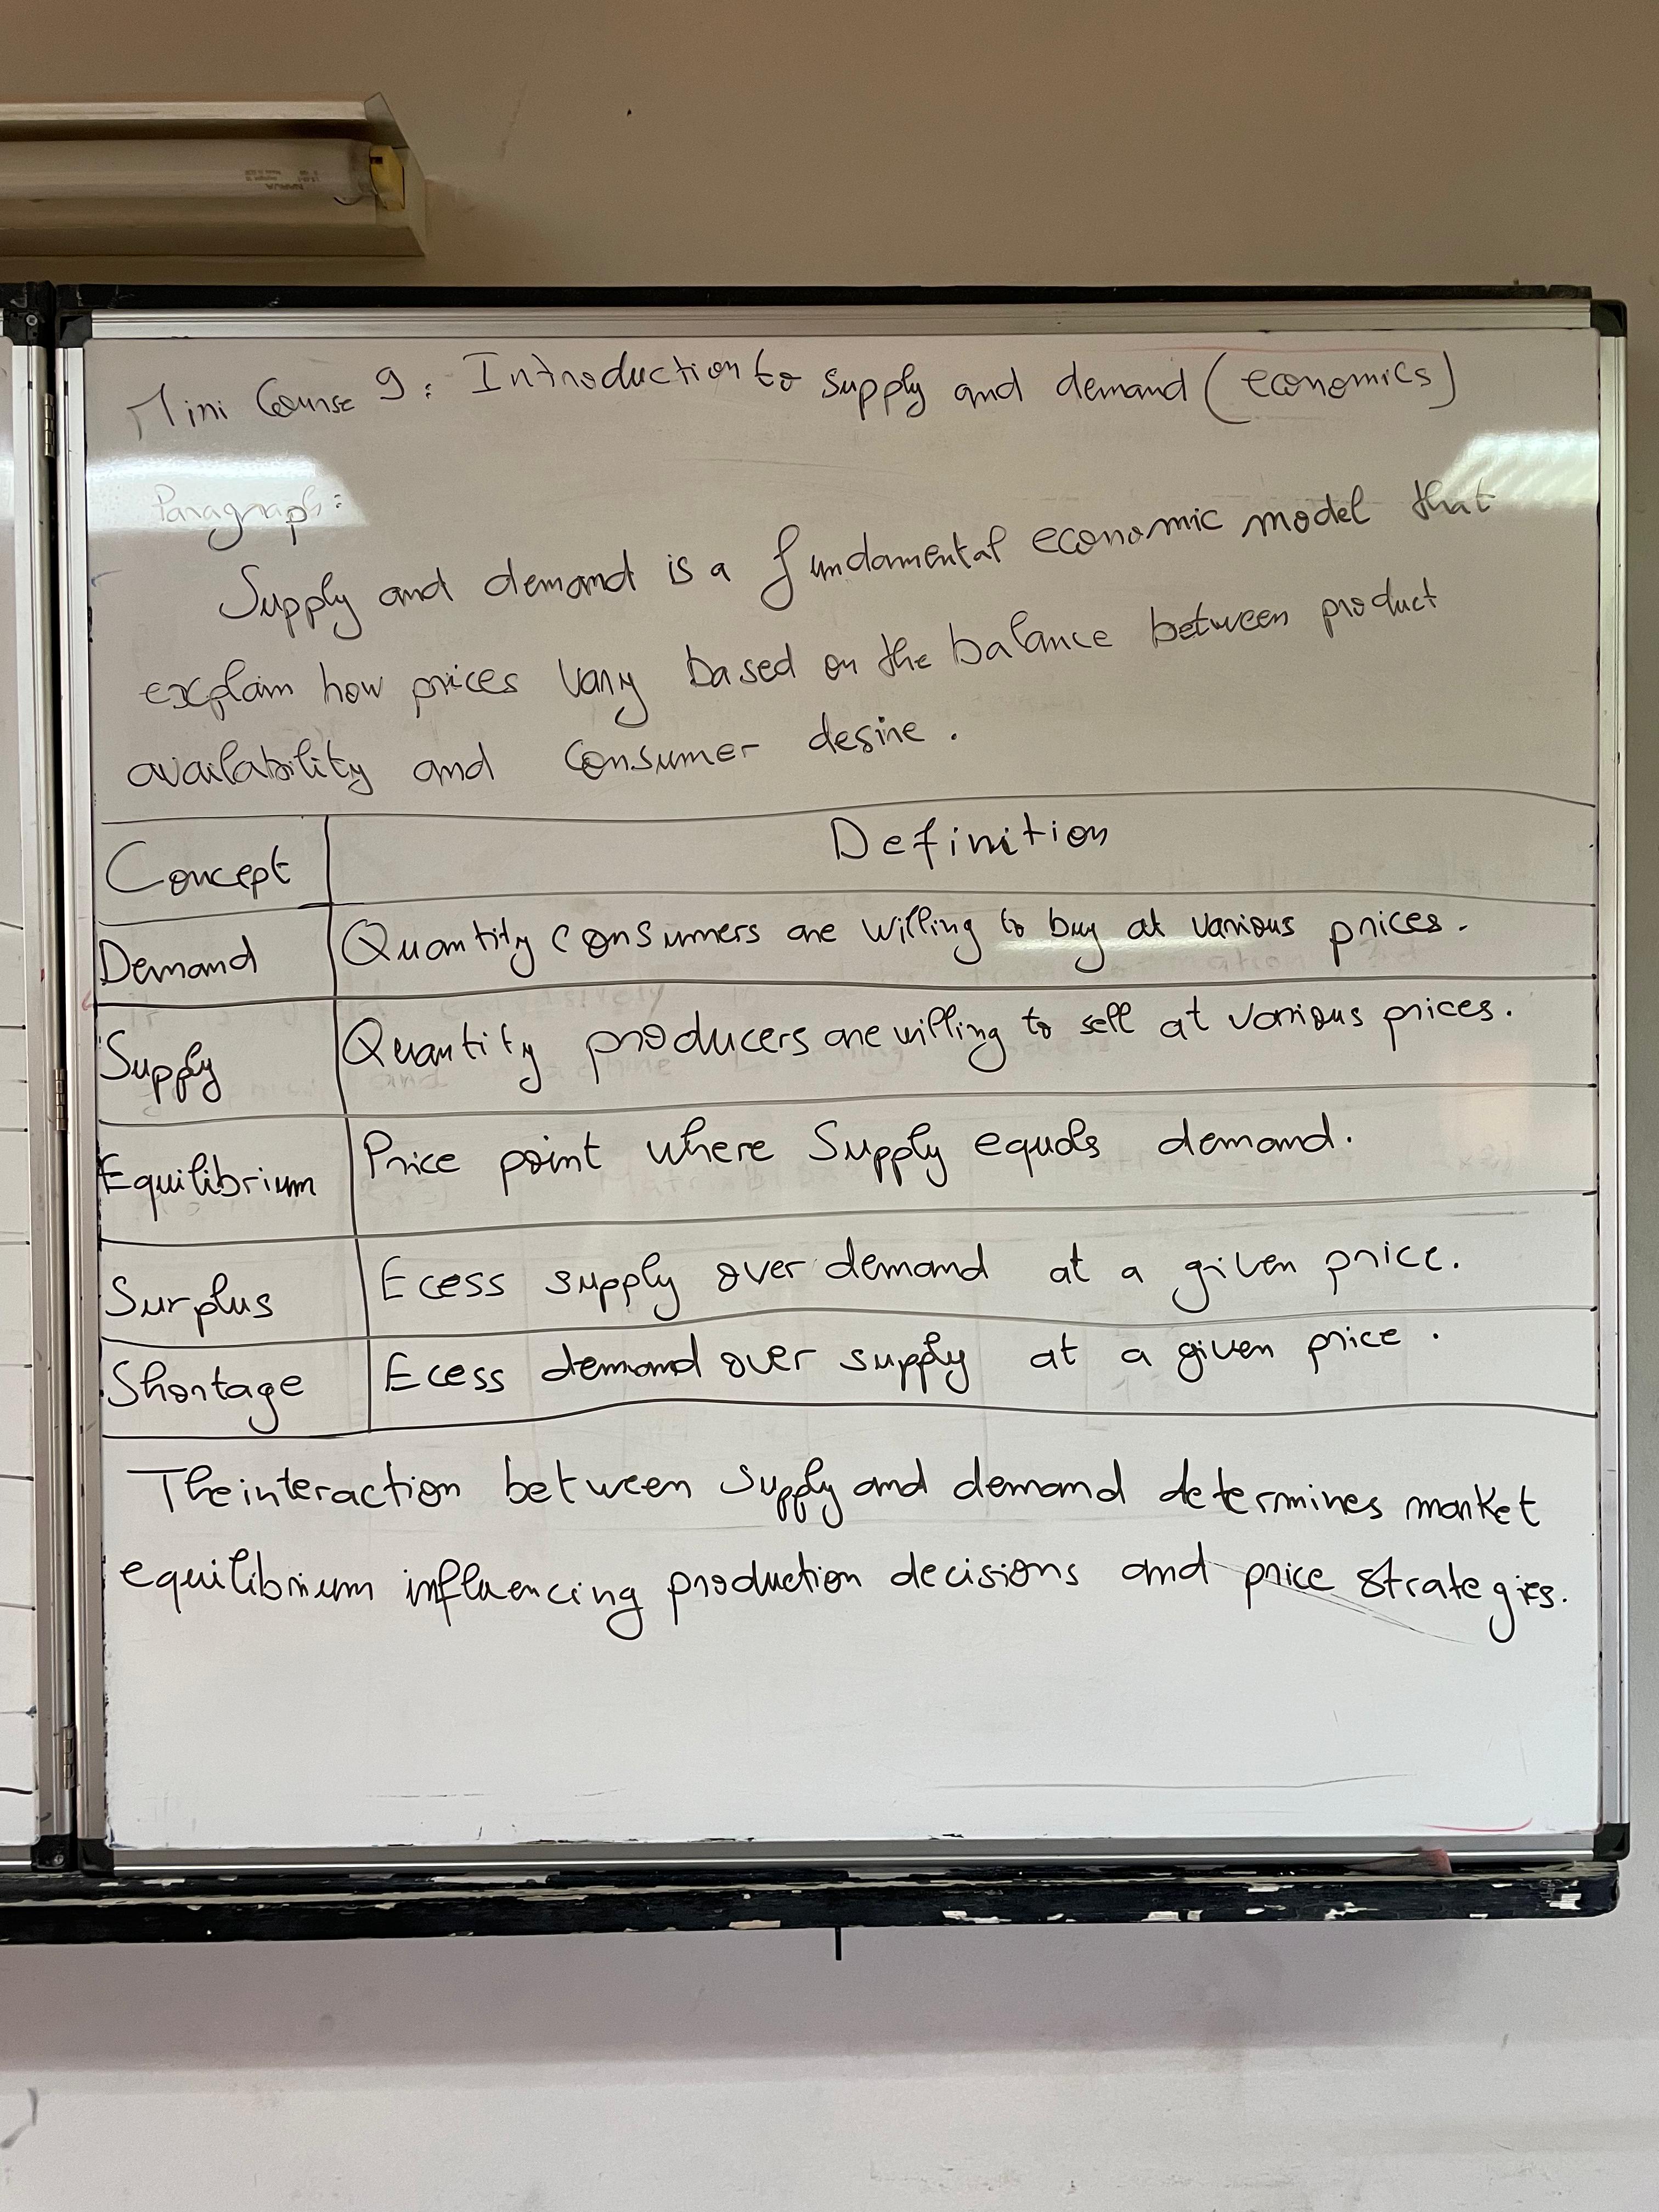 Mini Course 9: Introduction to supply and demand (economics)
Paragraph:
Supply and demand is a fundamental economic model that
explain how prices vary based on the balance between product
availability and consumer desire.
Concept Definition
Demand Quantity consumers are willing to buy at various prices.
Supply Quantity producers are willing to sell at various prices.
Equilibrium Price point where Supply equals demand.
Surplus Ecess supply over demand at a given price.
Shortage Ecess demand over supply at a given price.
The interaction between supply and demand determines market
equilibrium influencing production decisions and price strategies.